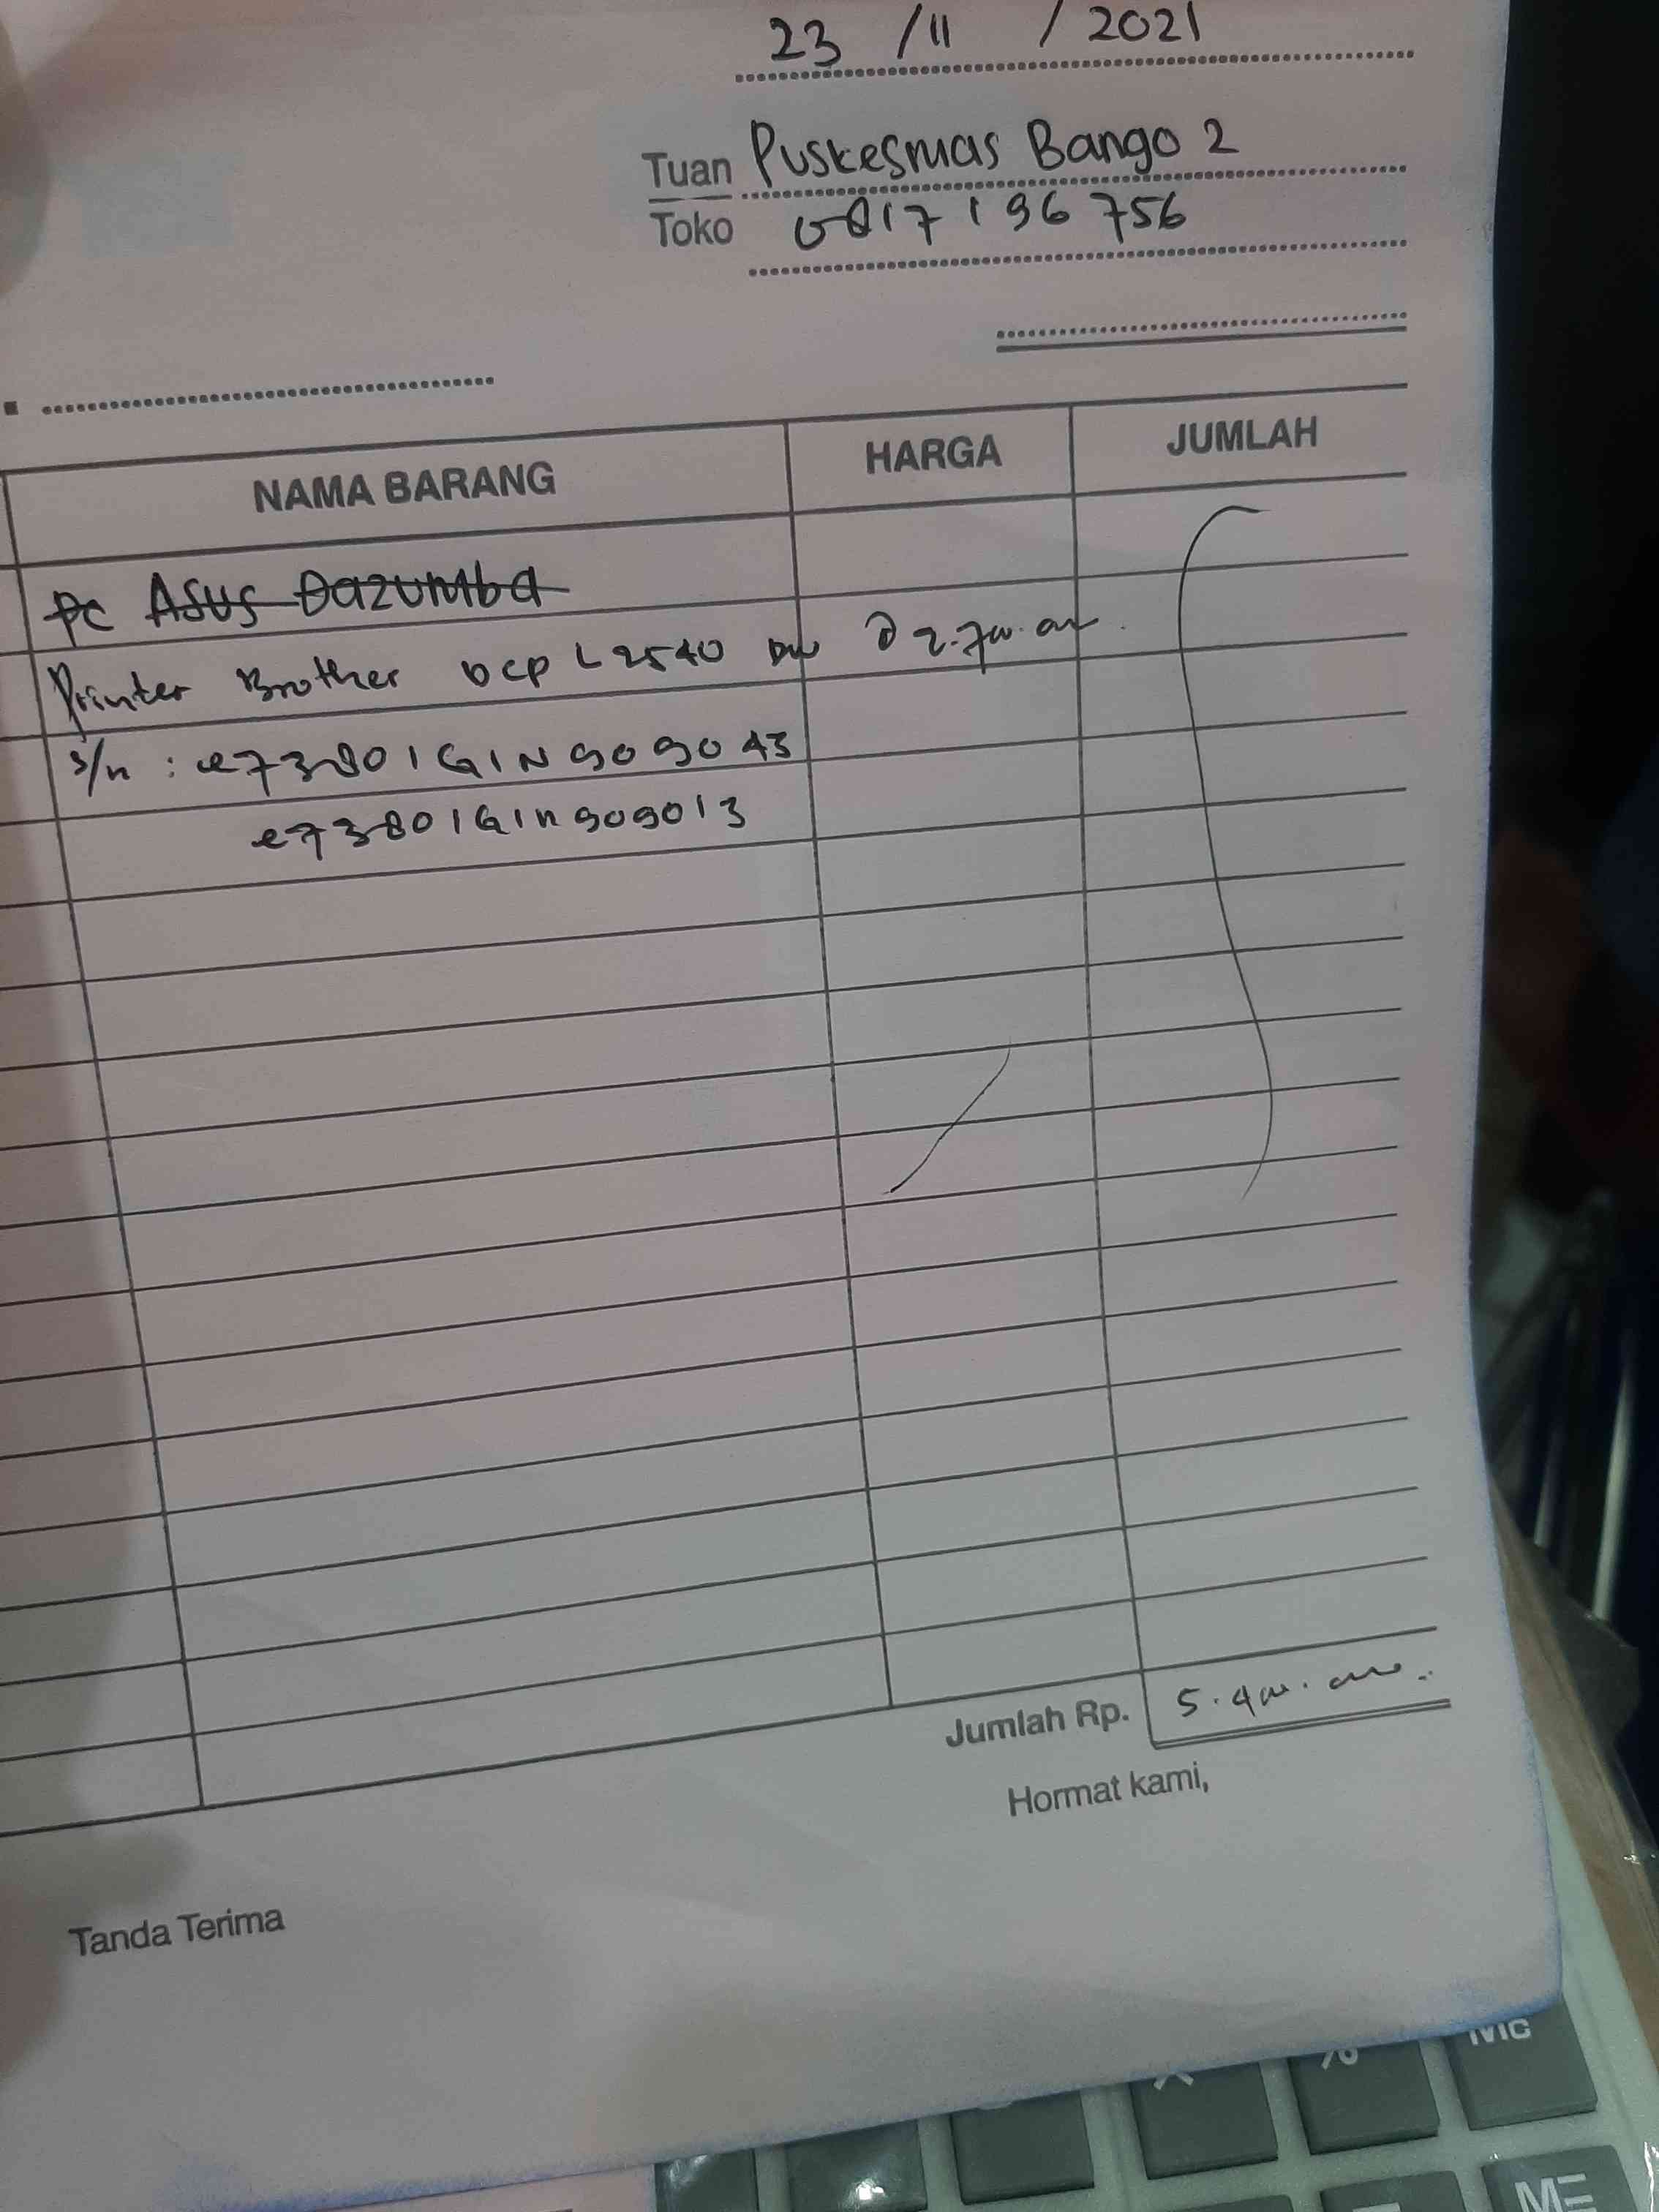 23 / 11 / 2021
Tuan Puskesmas Bango 2
Toko 0817 196 756
NAMA BARANG HARGA JUMLAH
PC Asus Dazumba
Printer Brother DCP L2540 DW @ 2.700.000
S/n : e73801G1N909043
e73801G1n909013
Jumlah Rp. 5.400.000
Hormat kami,
Tanda Terima
% MC